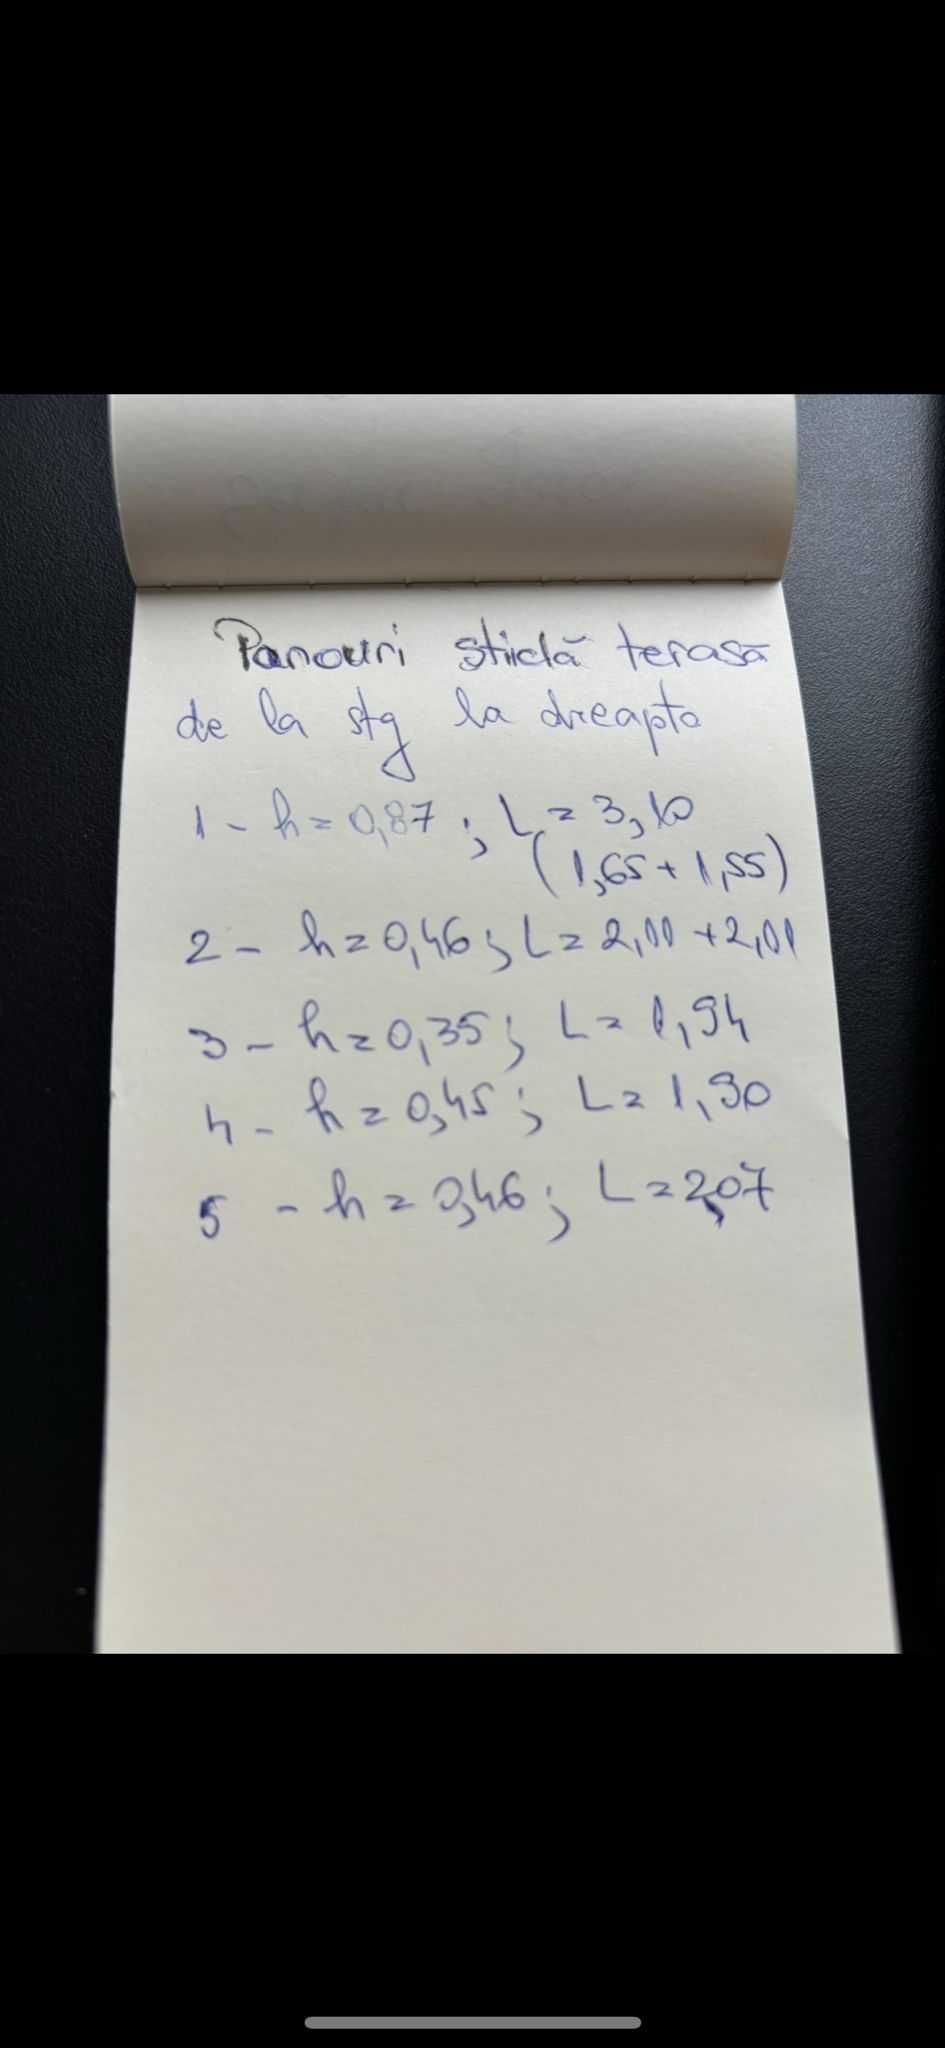 Panouri sticlă terasă
de la stg la dreapta
1 - h = 0,87 ; L = 3,10
(1,65 + 1,55)
2 - h = 0,46 ; L = 2,01 + 2,01
3 - h = 0,35 ; L = 1,94
4 - h = 0,45 ; L = 1,90
5 - h = 0,46 ; L = 2,07